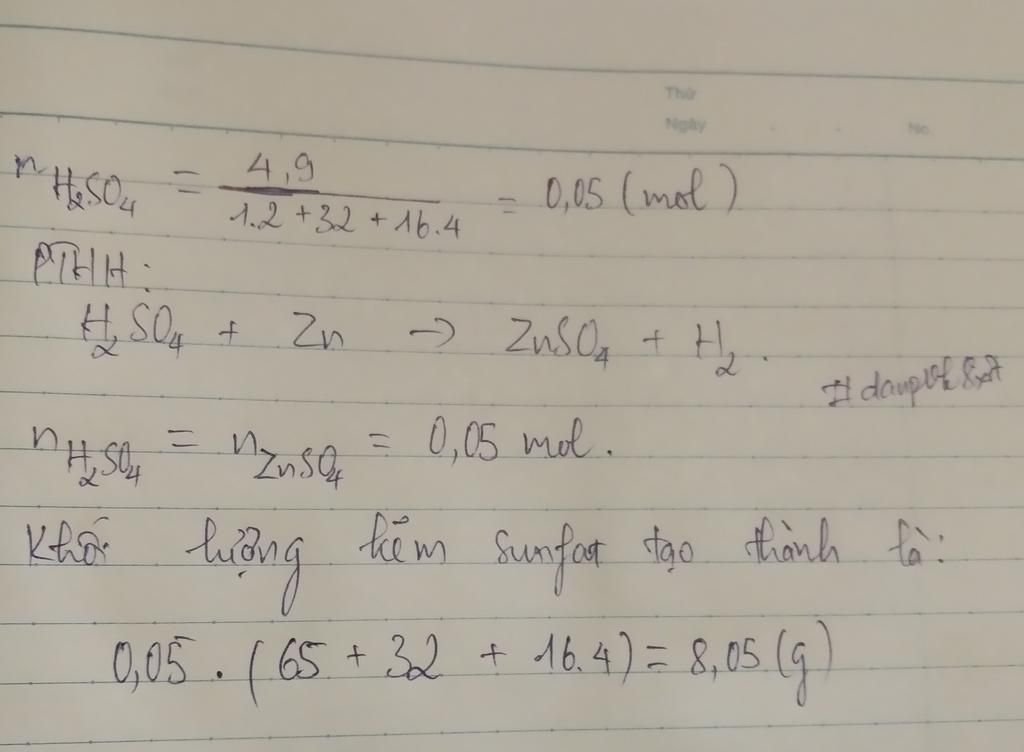 Thứ
Ngày No.
n H₂SO₄ = 4,9 / (1.2 + 32 + 16.4) = 0,05 (mol)
PTHH:
H₂SO₄ + Zn → ZnSO₄ + H₂.
n H₂SO₄ = n ZnSO₄ = 0,05 mol.
Khối lượng kẽm sunfat tạo thành là:
0,05 . (65 + 32 + 16.4) = 8,05 (g)